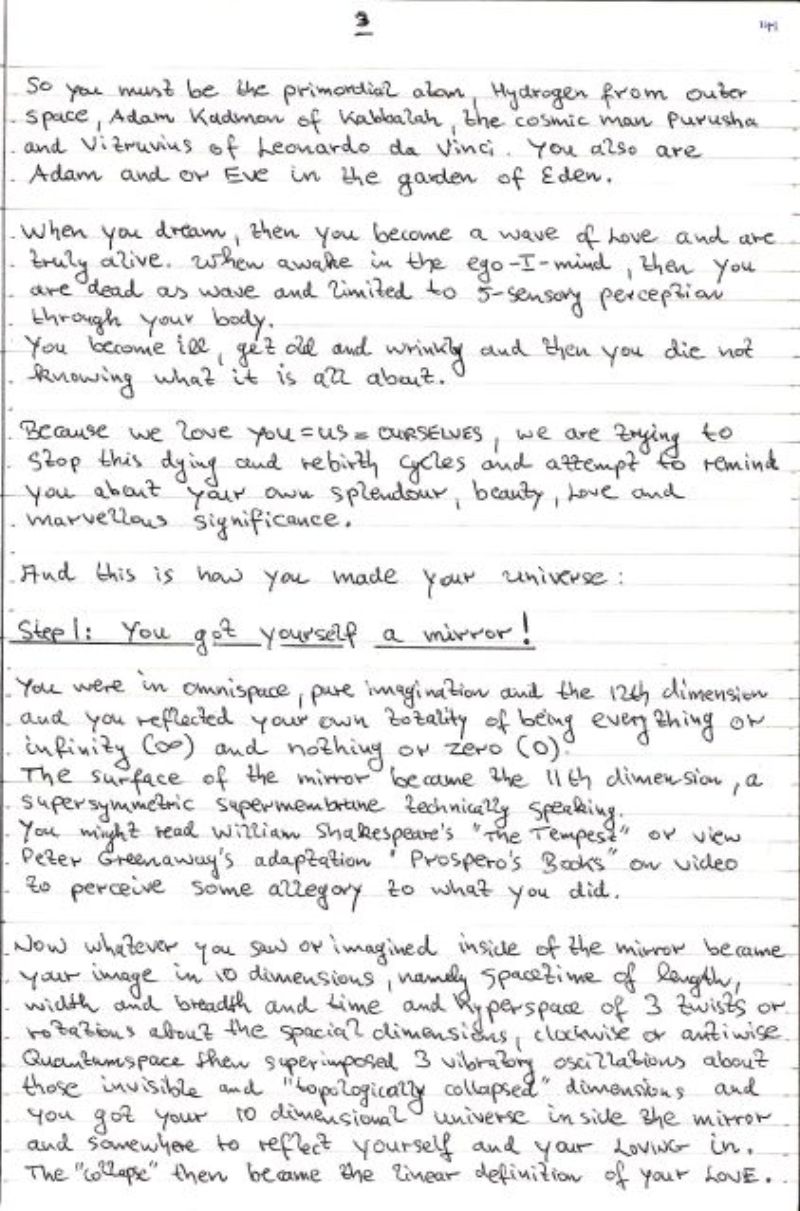 3
So you must be the primordial atom, Hydrogen from outer
space, Adam Kadmon of Kabbalah, the cosmic man Purusha
and Vitruvius of Leonardo da Vinci. You also are
Adam and or Eve in the garden of Eden.
When you dream, then you become a wave of Love and are
truly alive. When awake in the ego-I-mind, then you
are dead as wave and limited to 5-sensory perception
through your body.
You become ill, get old and wrinkly and then you die not
knowing what it is all about.
Because we love you=us=OURSELVES, we are trying to
stop this dying and rebirth cycles and attempt to remind
you about your own splendour, beauty, Love and
marvellous significance.
And this is how you made your universe:
Step 1: You got yourself a mirror!
You were in omnispace, pure imagination and the 12th dimension
and you reflected your own totality of being everything or
infinity (∞) and nothing or zero (0).
The surface of the mirror became the 11th dimension, a
supersymmetric supermembrane technically speaking.
You might read William Shakespeare's "The Tempest" or view
Peter Greenaway's adaptation "Prospero's Books" on video
to perceive some allegory to what you did.
Now whatever you saw or imagined inside of the mirror became
your image in 10 dimensions, namely spacetime of length,
width and breadth and time and hyperspace of 3 twists or
rotations about the spacial dimensions, clockwise or antiwise.
Quantumspace then superimposed 3 vibratory oscillations about
those invisible and "topologically collapsed" dimensions and
you got your 10 dimensional universe inside the mirror
and somewhere to reflect yourself and your LOVING in.
The "collapse" then became the linear definition of your LOVE.